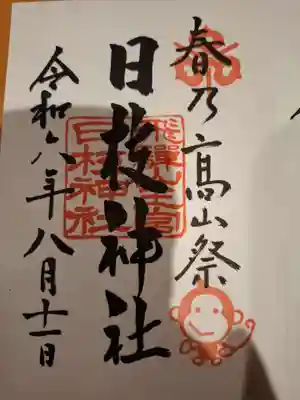 春乃高山祭
日枝神社
飛騨山王宮
日枝神社
令和六年八月十一日